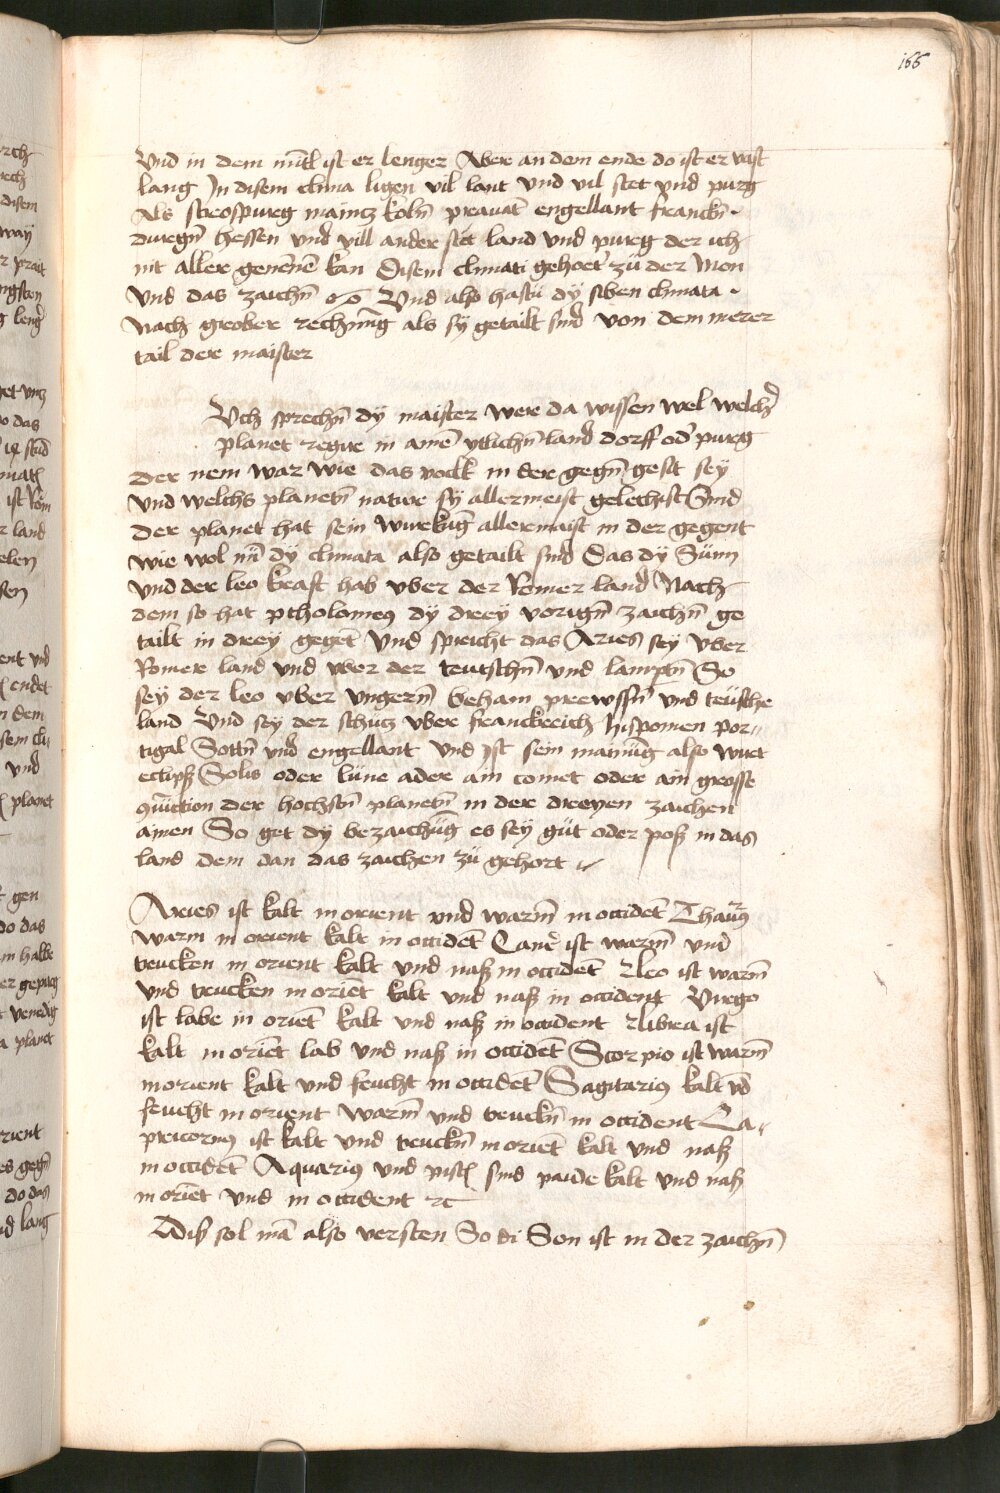 166
Vnd in dem mittl ist er lenger Aber an dem ende do ist er vast
lang In disem clima ligen vil lant vnd vil stet vnd purg
Als strospurg maintz koln̄ prauāt engellant franckn̄
duregn̄ hessen vnd vill ander stet land vnd pureg der ich
nit aller genēnē kan Disem climati gehoert zü der Mon
Vnd das zaichn̄ ♋ Vnd also hastu dÿ siben climata
Nach grober rechnūg als sÿ getailt sind von dem merer
tail der maister
Vch sprechn̄ dÿ maister wer da wissen wel welchr̄
planet regire in ainē ytlichn̄ land dorff od̄ pureg
Der nem war wie das volk in der gegn̄ gesit seÿ
vnd welchs planetn̄ nature sÿ allermeist gelechist Sind
Der planet hat sein wurkūg allermaist in der gegent
wie wol nū dÿ climata also getailt sind Das dÿ Sünn
vnd der leo kraft hab vber der Romer land Nach
dem so hat ptholomeus dÿ dreÿ vorign̄ zaichn̄ ge
tailt in dreÿ gegēt Vnd spricht das Aries seÿ vber
Romer land vnd vber der teutschn̄ vnd lamptn̄ So
seÿ der leo vber vngern̄ beham prewssn̄ vnd teüsche
land Vnd seÿ der schutz vber franckreich hispanien por
tigal Sottn̄ vnd engellant Vnd Ist sein mainūg also wirt
eclipß Solis oder lüne ader ain comet oder ain grosse
9iūction der hochstn̄ planetn̄ in der dreyen zaichen
ainen So get dÿ bezaichūg es seÿ güt oder poß in das
land dem dan das zaichen zü gehort
Aries ist kalt in orient vnd warm̄ in occidēt Thaurus
warm in orient kalt in occidēt Canc̄ ist warm̄ vnd
trucken in orient kalt vnd naß in occidēt Leo ist warm̄
vnd trucken in oriēt kalt vnd naß in occident Virgo
ist labe in oriēt kalt vnd naß in occident Libra ist
kalt in oriēt lab vnd naß in occidēt Scorpio ist warm̄
in orient kalt vnd feucht in occidēt Sagitarius kalt vd̄
feucht in orient warm̄ vnd truckn̄ in occident Ca
pricornus ist kalt vnd truckn̄ in oriēt kalt vnd naß
in occidēt Aquarius vnd pisces sind paide kalt vnd naß
in oriēt vnd in occident ꝛc
Diß sol mā also versten So di Son ist in der zaichn̄